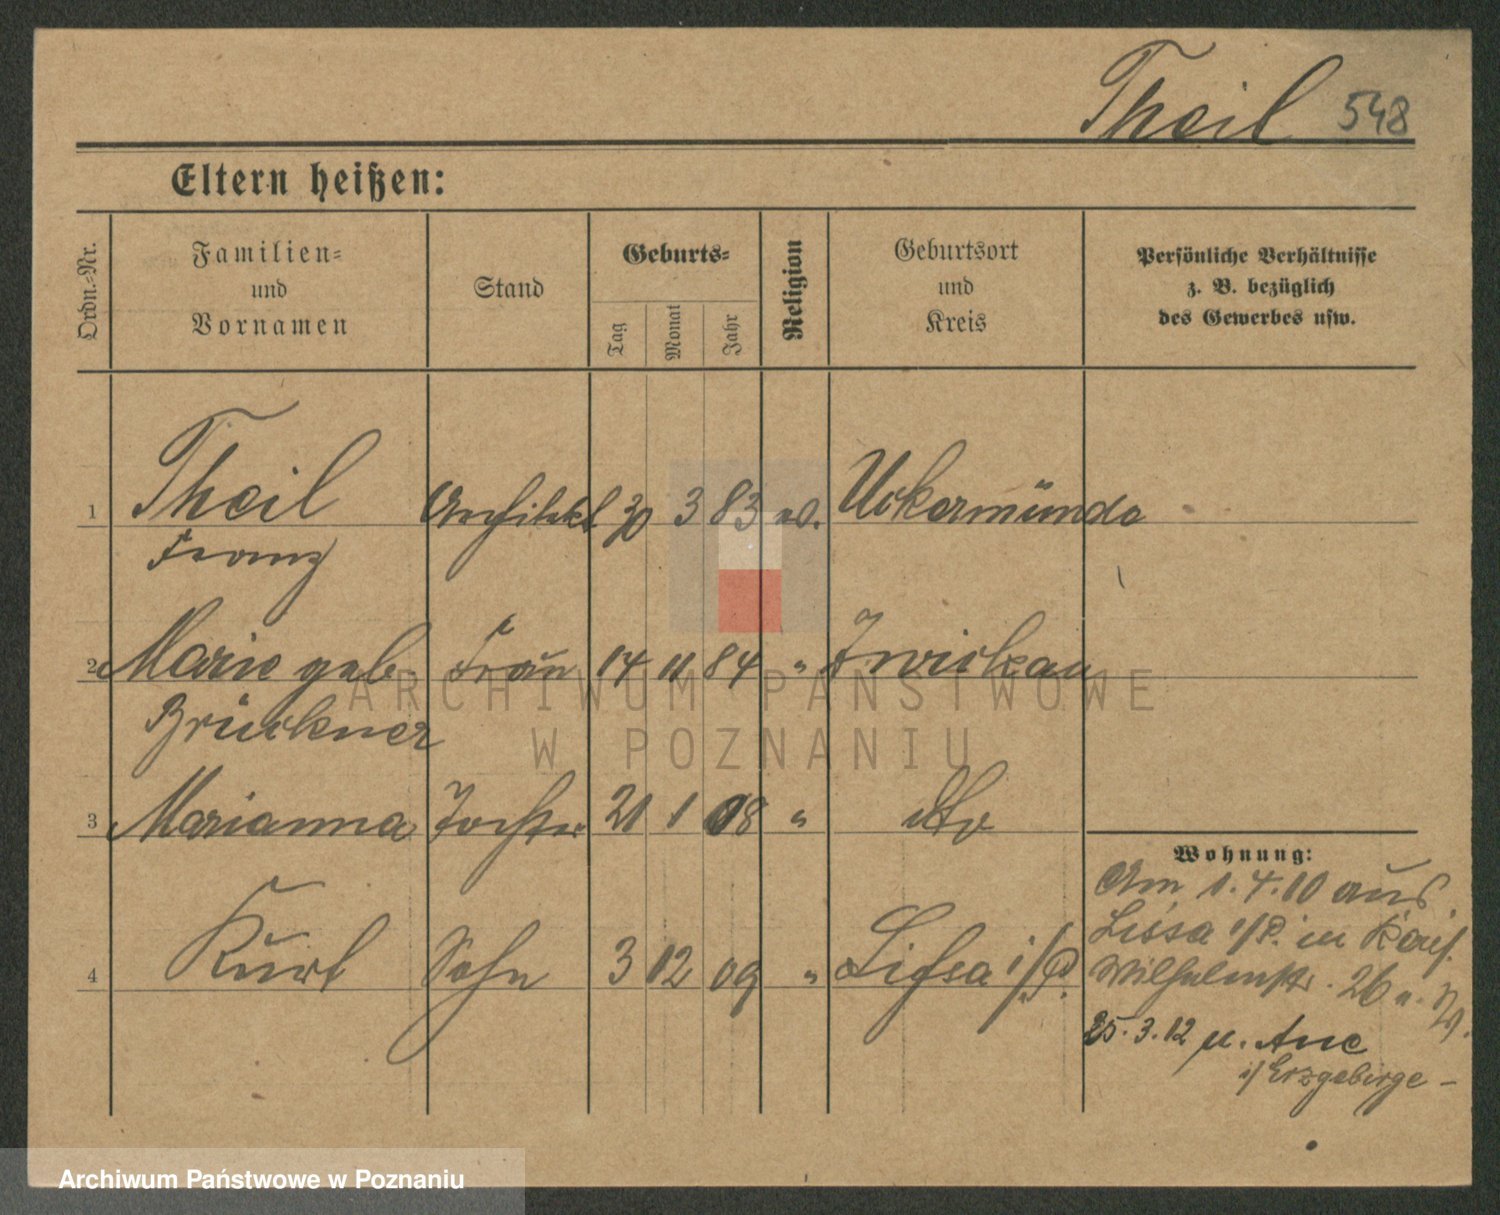 Theil 548
Eltern heißen:
Ordn.-Nr.
Familien-
und
Vornamen
Stand
Geburts-
Tag
Monat
Jahr
Religion
Geburtsort
und
Kreis
Persönliche Verhältnisse
z. B. bezüglich
des Gewerbes usw.
1 Theil Architekt 30 3 83 Uckermünde
Franz
2 Marie geb. Frau 14 11 84 " Zwickau
Brückner
3 Marianna Tochter 21 1 08 " dto
4 Kurt Sohn 3 12 09 " Lissa i/P.
Wohnung:
Am 1.4.10 aus
Lissa i/P. in Kais.
Wilhelmstr. 26
25.3.12 n. Aue
i/ Erzgebirge –
ARCHIWUM PAŃSTWOWE
W POZNANIU
Archiwum Państwowe w Poznaniu